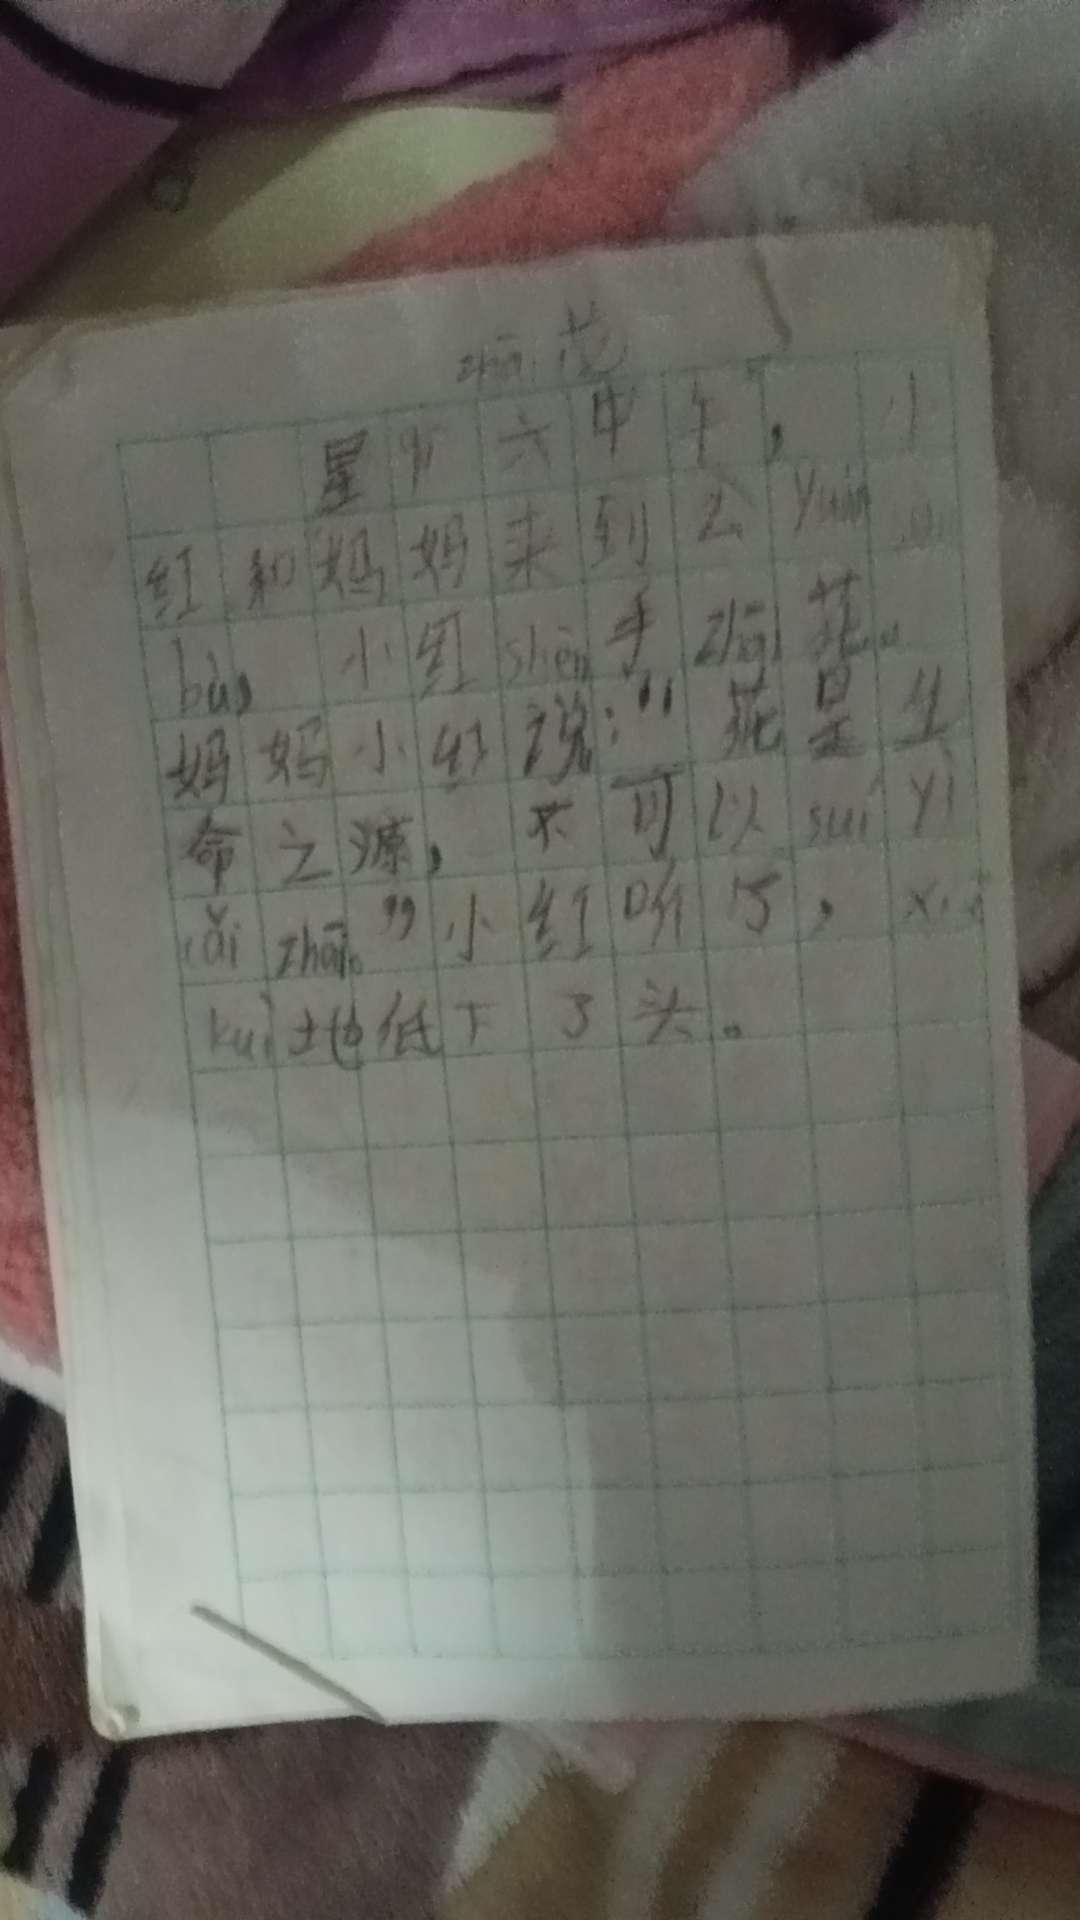 zhāi 花
星 六 中 午 , 小
红 和 妈 妈 来 到 公 yuán
bù, 小 红 shēn 手 zhāi 花
妈 妈 小 红 说 :“ 花 是 生
命 之 源 , 不 可 以 suí yì
cǎi zhāi。” 小 红 听 了 ,
kuì 地 低 下 了 头 。